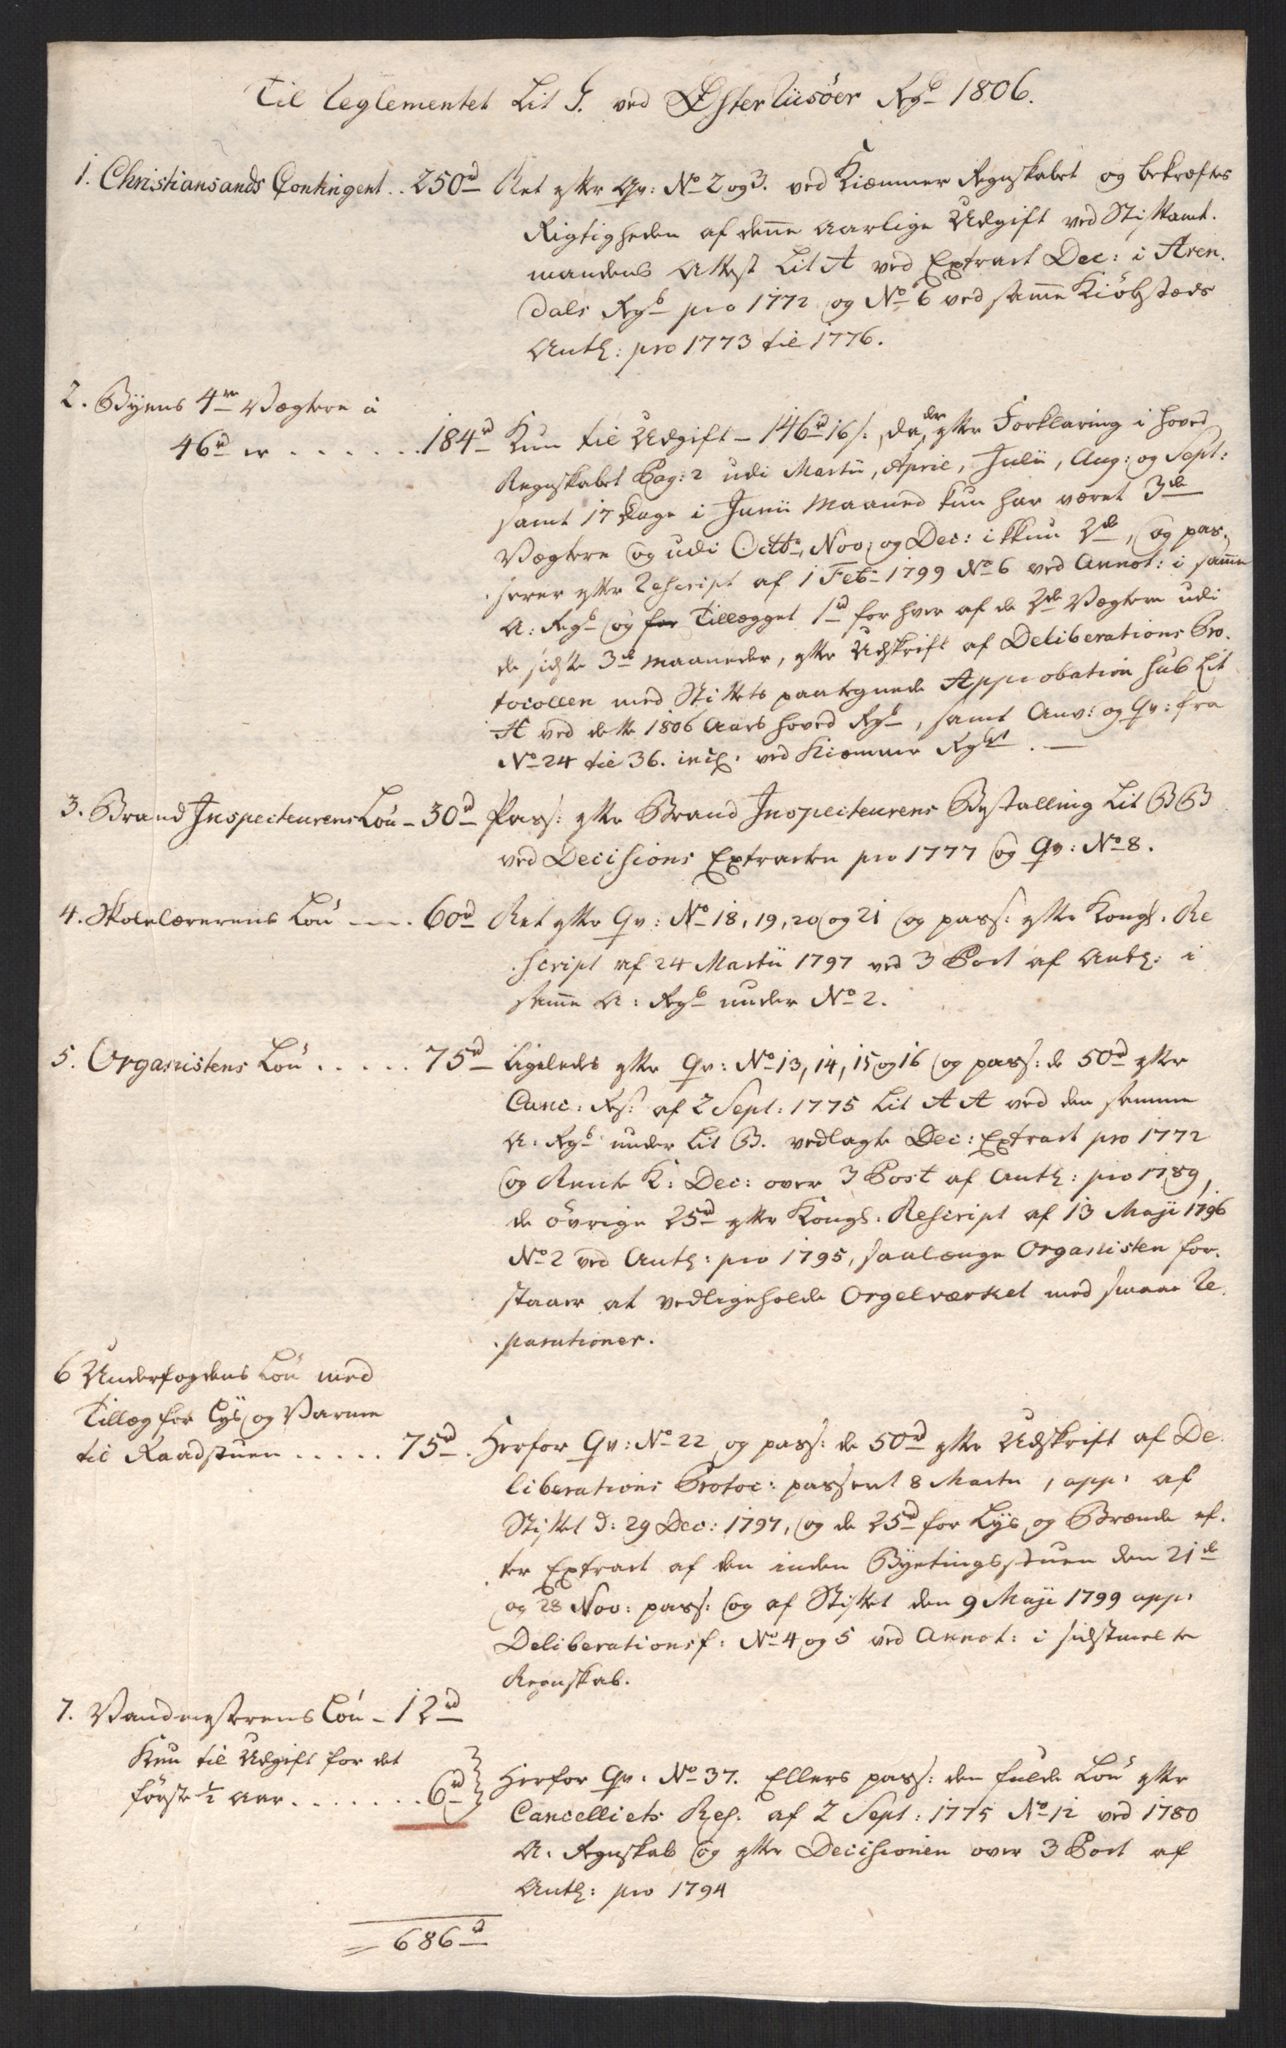 Til Reglementet Lit J. ved Øster Riisöer Rgsb 1806.
1. Christiansands Contingent .. 250rd
Ret efter Qv: No 2 og 3. ved Kiæmner Regnskabet og bekræftes
Rigtigheden af denne Aarlige Udgift ved Stiftamt-
mandens Attest Lit A ved Extract Dec: i Aren-
dals Rgsb pro 1772 og No 6 ved samme Kiöbstæds
Anth: pro 1773 til 1776.
2. Byens 4re Vægtere à
46rd er . . . . . . 184rd
Kun til Udgift – 146rd 16s:, da der efter Forklaring i Hoved
Regnskabet Pag: 2 udi Martii, April, Julii, Aug: og Sept:
samt 17 Dage i Junii Maaned kun har været 3de
Vægtere og udi Octbr, Nov: og Dec: ikkun 2de, og pas-
serer efter Rescript af 1 Febr 1799 No 6 ved Annot: i samme
A: Rgsb og for Tillægget 1rd for hver af de 2de Vægtere udi
de sidste 3de Maaneder, efter Udskrift af Deliberations Pro-
tocollen med Stiftets paategnede Approbation sub Lit
A ved dette 1806 Aars Hoved Rgsb, samt Anv: og Qv: fra
No 24 til 36. incl: ved Kiæmner Rgsb. —
3. Brand Inspecteurens Lön – 30rd
Pass: efter Brand Inspecteurens Bestalling Lit BB
ved Decisions Extracten pro 1777 og Qv: No 8.
4. Skolelærerens Lön —— 60rd
Ret efter Qv: No 18, 19, 20 og 21 og pass: efter Kongl. Re-
script af 24 Martii 1797 ved 3 Post af Anth: i
samme A: Rgsb under No 2.
5. Organistens Lön . . . . . 75rd
Ligeledes efter Qv: No 13, 14, 15 og 16 og pass: de 50rd efter
Canc: Res: af 2 Sept: 1775 Lit AA ved den samme
A: Rgsb under Lit B. vedlagte Dec: Extract pro 1772
og Rente K: Dec: over 3 Post af Anth: pro 1789,
de övrige 25rd efter Kongl: Rescript af 13 Maji 1796
No 2 ved Anth: pro 1795, saalænge Organisten for-
staaer at vedligeholde Orgelværket med smaae Re-
parationer.
6 Underfogdens Lön med
Tillæg for Lys og Varme
til Raadstuen . . . . . 75rd.
Herfor Qv: No 22 og pass: de 50rd efter Udskrift af De-
liberations Protoc: passeret 8 Martii, app: af
Stiftet d: 29 Dec: 1797, og de 25rd for Lys og Brænde ef-
ter Extract af den inden Byetingsstuen den 21de
og 28 Nov: pass: og af Stiftet den 9 Maji 1799 app:
Deliberationsf: No 4 og 5 ved Annot: i sidstmelte
Regnskab.
7. Vandmesterens Lön – 12rd
Kun til Udgift for det
förste ½ Aar. . . . . . . 6rd
Herfor Qv: No 37. Ellers pass: den fulde Lön efter
Cancelliets Res: af 2 Sept: 1775 No 12 ved 1780
A: Regnskab og efter Decisionen over 3 Post af
Anth: pro 1794
= 686rd